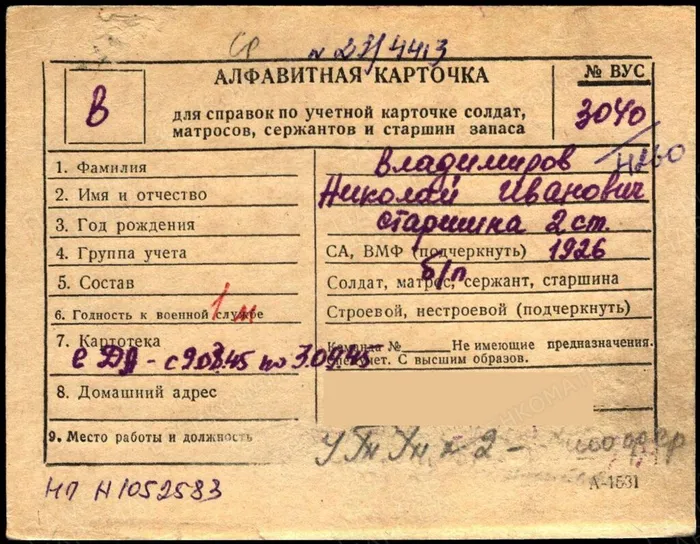 Ср № 23/4443
АЛФАВИТНАЯ КАРТОЧКА
для справок по учетной карточке солдат,
матросов, сержантов и старшин запаса
В
№ ВУС
3040
Н260
1. Фамилия Владимиров
2. Имя и отчество Николай Иванович
3. Год рождения старшина 2 ст.
4. Группа учета СА, ВМФ (подчеркнуть) 1926
5. Состав Солдат, матрос, сержант, старшина б/п
6. Годность к военной службе Строевой, нестроевой (подчеркнуть)
1 м
7. Картотека Команда № Не имеющие предназначения.
Спецучет. С высшим образов.
с ДА - с 9.0 .45 по 3.09.45
8. Домашний адрес
9. Место работы и должность
НП Н1052583
А-1531